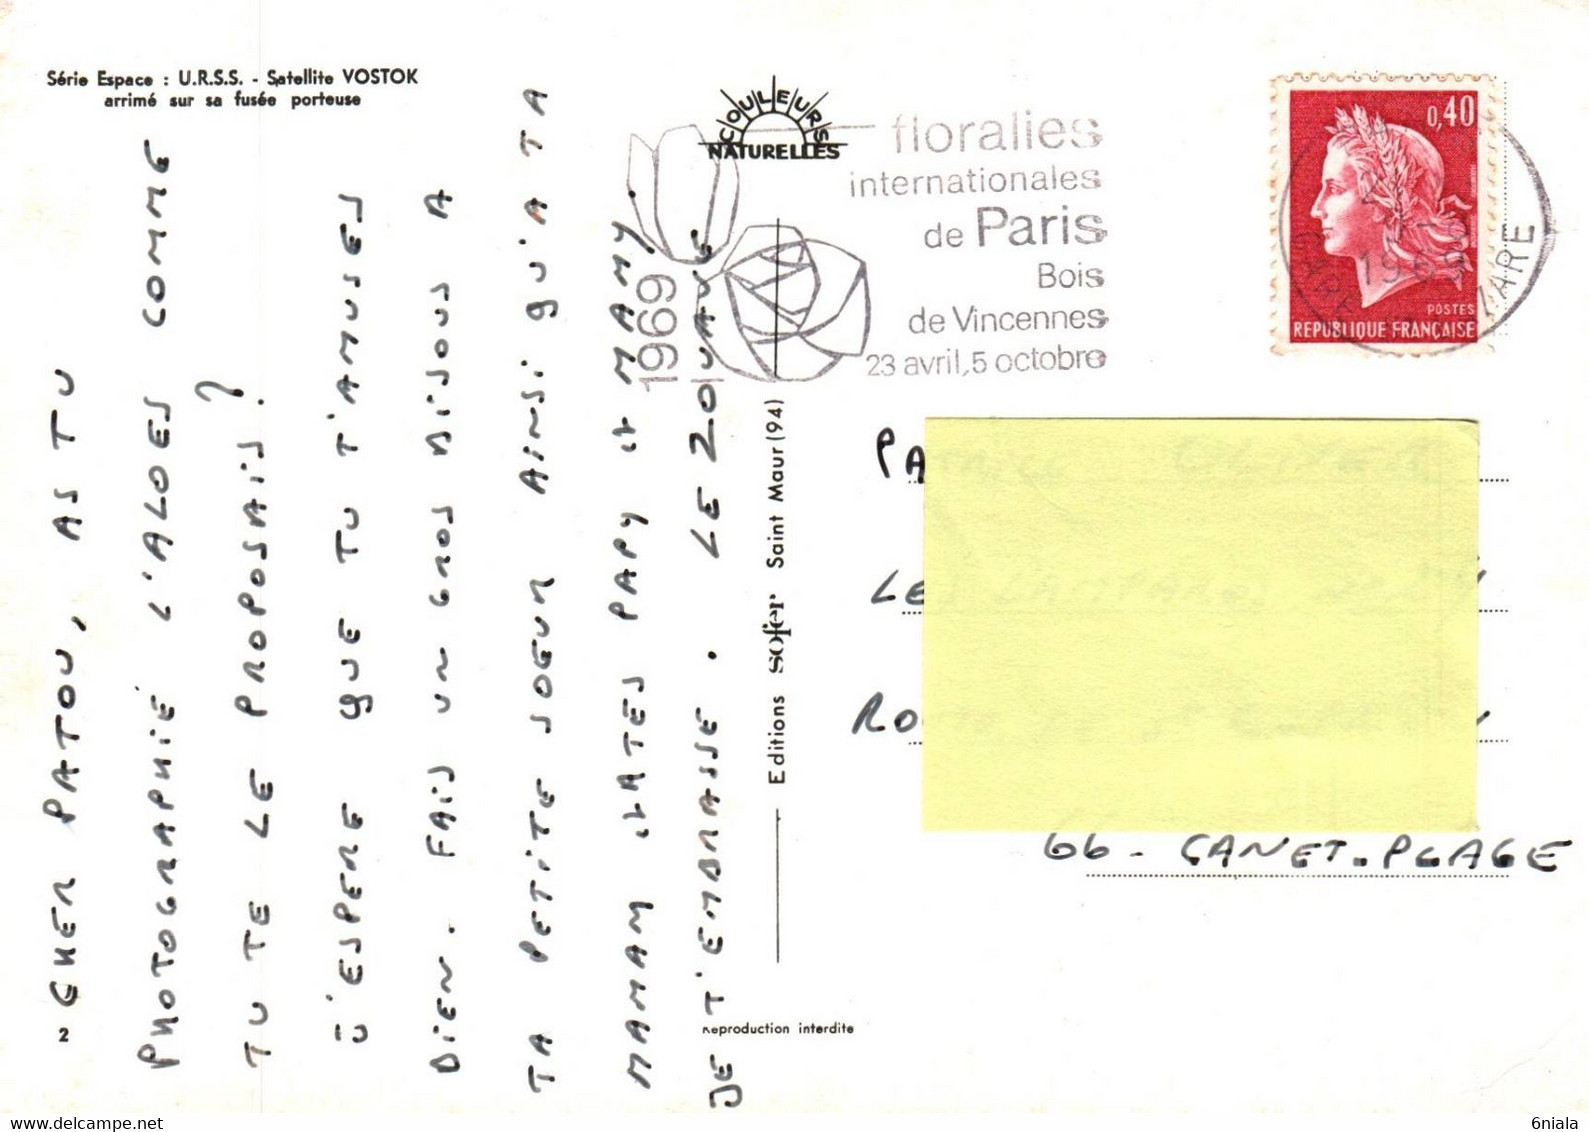 Série Espace : U.R.S.S. - Satellite VOSTOK
arrimé sur sa fusée porteuse
COULEURS
NATURELLES
floralies
internationales
de Paris
Bois
de Vincennes
23 avril, 5 octobre
1969
0,40
POSTES
REPUBLIQUE FRANÇAISE
1969
CHER PATOU, AS TU
PHOTOGRAPHIÉ L'ALOES COMME
TU TE LE PROPOSAIS ?
J'ESPERE QUE TU T'AMUSES
BIEN. FAIS UN GROS BISOUS A
TA PETITE SOEUR AINSI QU'A TA
MAMAN ET TES PAPY ET MAMY.
JE T'EMBRASSE. LE ZOUAVE
2
Editions sofer Saint Maur (94)
Reproduction interdite
66 - CANET-PLAGE
6niala